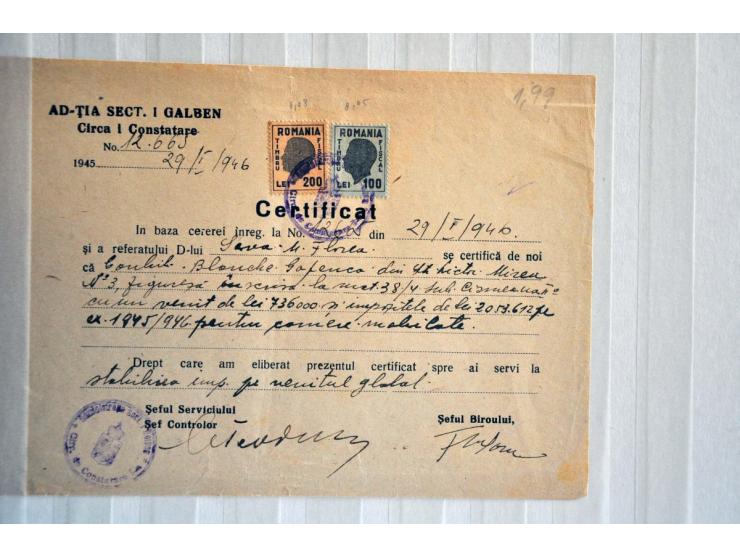 1,99
AD-ȚIA SECT. I GALBEN
Circa I Constatare
No. 12.665
1945 29/I/946
ROMANIA
TIMBRU FISCAL
LEI 200
ROMANIA
TIMBRU FISCAL
LEI 100
Certificat
In baza cererei înreg. la No. din 29/I/946
și a referatului D-lui Sava M. Florea se certifică de noi
că Contrib. Blanche Gafencu din Victor
No 3, figurează înscrisă la mat. 38/4 sub
cu un venit de lei 736000 și impozitele de lei pe
ex. 1945/946 pentru camere mobilate.
Drept care am eliberat prezentul certificat spre ai servi la
stabilirea imp. pe venitul global.
Șeful Serviciului
Șef Controlor
Șeful Biroului,